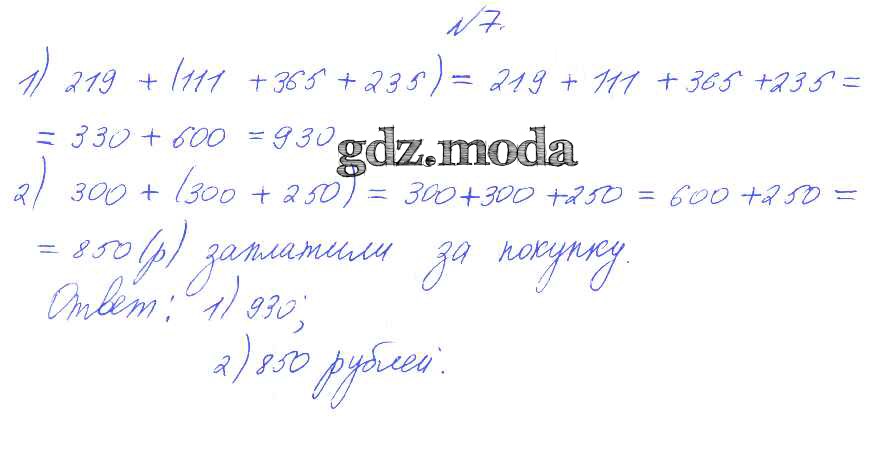 №7.
1) 219 + (111 + 365 + 235) = 219 + 111 + 365 + 235 =
= 330 + 600 = 930
gdz.moda
2) 300 + (300 + 250) = 300 + 300 + 250 = 600 + 250 =
= 850 (р) заплатили за покупку.
Ответ: 1) 930;
2) 850 рублей.